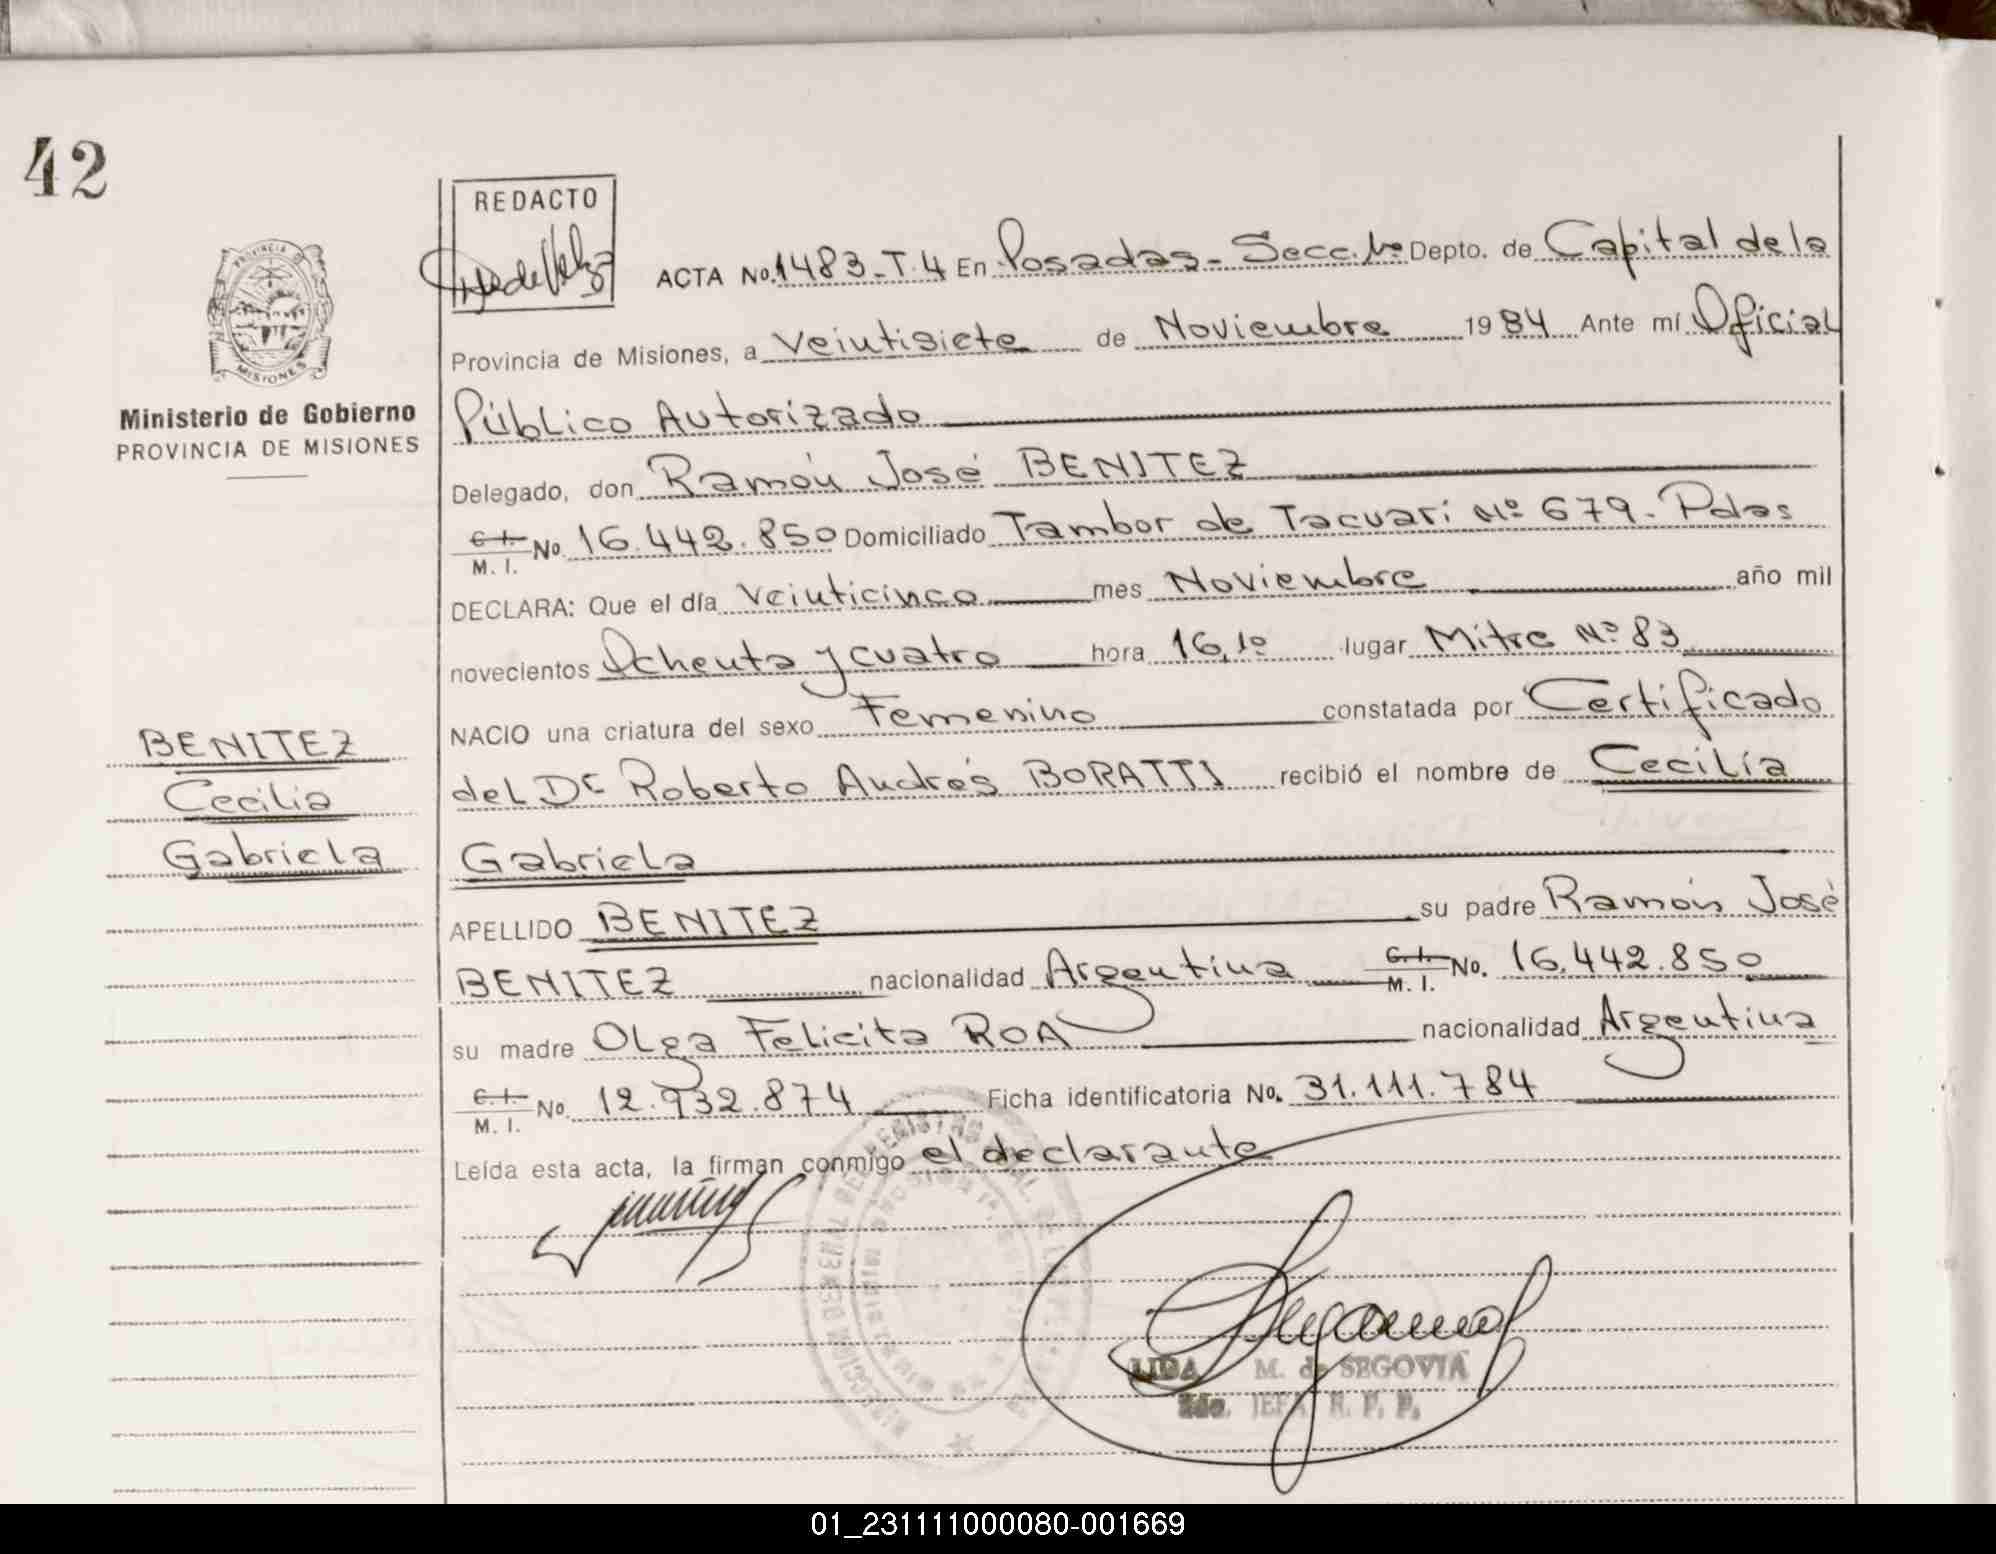 42
REDACTO
ACTA No. 1483-T.4 En Posadas - Secc. 1ª Depto. de Capital de la
Provincia de Misiones, a Veintisiete de Noviembre 1984 Ante mí Oficial
Público Autorizado
Delegado, don Ramón José BENITEZ
C.I. M. I. No. 16.442.850 Domiciliado Tambor de Tacuarí Nº 679 - Pdas
DECLARA: Que el día Veinticinco mes Noviembre año mil
novecientos Ochenta y cuatro hora 16,10 lugar Mitre Nº 83
NACIO una criatura del sexo Femenino constatada por Certificado
del Dr Roberto Andrés BORATTI recibió el nombre de Cecilia
Gabriela
APELLIDO BENITEZ su padre Ramón José
BENITEZ nacionalidad Argentina C.I. M. I. No. 16.442.850
su madre Olga Felicita ROA nacionalidad Argentina
C.I. M. I. No. 12.932.874 Ficha identificatoria No. 31.111.784
Leída esta acta, la firman conmigo el declarante
LIDA M. de SEGOVIA
2da. JEFA R. P. P.
PROVINCIA DE
MISIONES
Ministerio de Gobierno
PROVINCIA DE MISIONES
BENITEZ
Cecilia
Gabriela
01_231111000080-001669